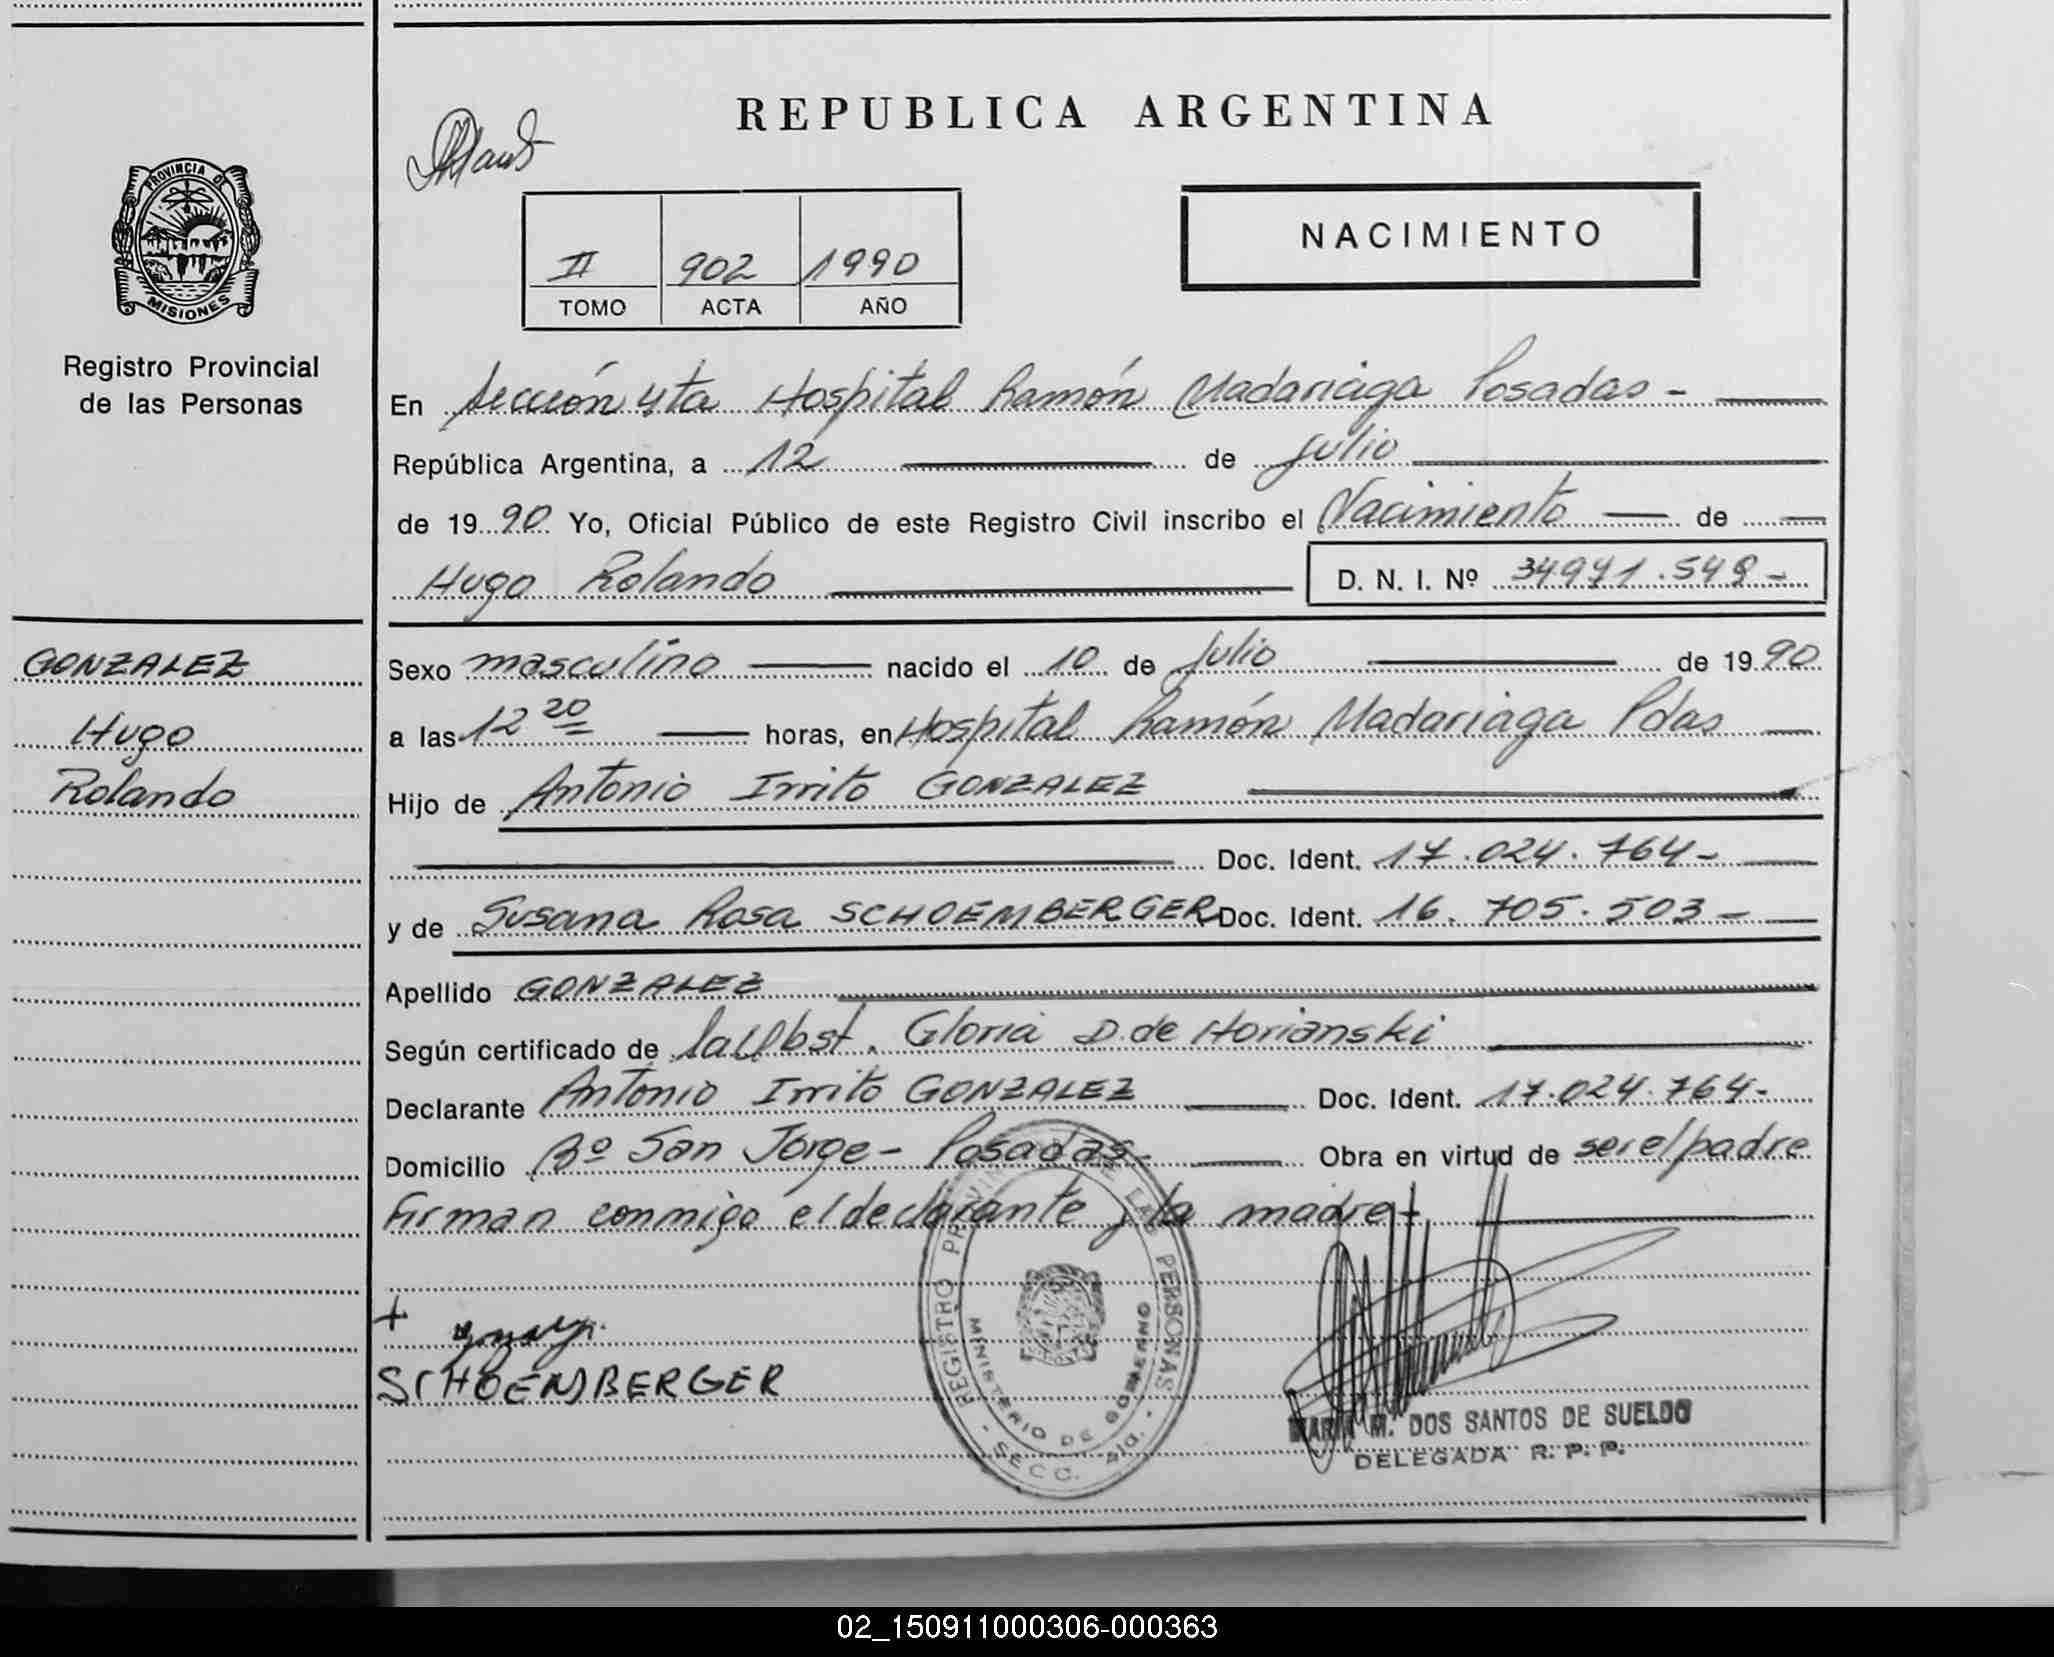 REPUBLICA ARGENTINA
PROVINCIA DE
MISIONES
Registro Provincial
de las Personas
II 902 1990
TOMO ACTA AÑO
NACIMIENTO
En Sección 4ta Hospital Ramón Madariaga Posadas -
República Argentina, a 12 de julio
de 1990 Yo, Oficial Público de este Registro Civil inscribo el Nacimiento de
Hugo Rolando D. N. I. Nº 34971.549 -
GONZALEZ
Hugo
Rolando
Sexo masculino nacido el 10 de Julio de 1990
a las 12 20 horas, en Hospital Ramón Madariaga Pdas
Hijo de Antonio Irrito GONZALEZ
Doc. Ident. 17.024.764-
y de Susana Rosa SCHOEMBERGER Doc. Ident. 16.705.503-
Apellido GONZALEZ
Según certificado de la Obst. Gloria D. de Horianski
Declarante Antonio Irrito GONZALEZ Doc. Ident. 17.024.764-
Domicilio Bº San Jorge - Posadas- Obra en virtud de ser el padre
Firman conmigo el declarante y la madre -
+
SCHOENBERGER
REGISTRO PROVINCIAL DE LAS PERSONAS
MINISTERIO DE GOBIERNO
- SECC. 4ta. -
MARIA M. DOS SANTOS DE SUELDO
DELEGADA R. P. P.
02_150911000306-000363